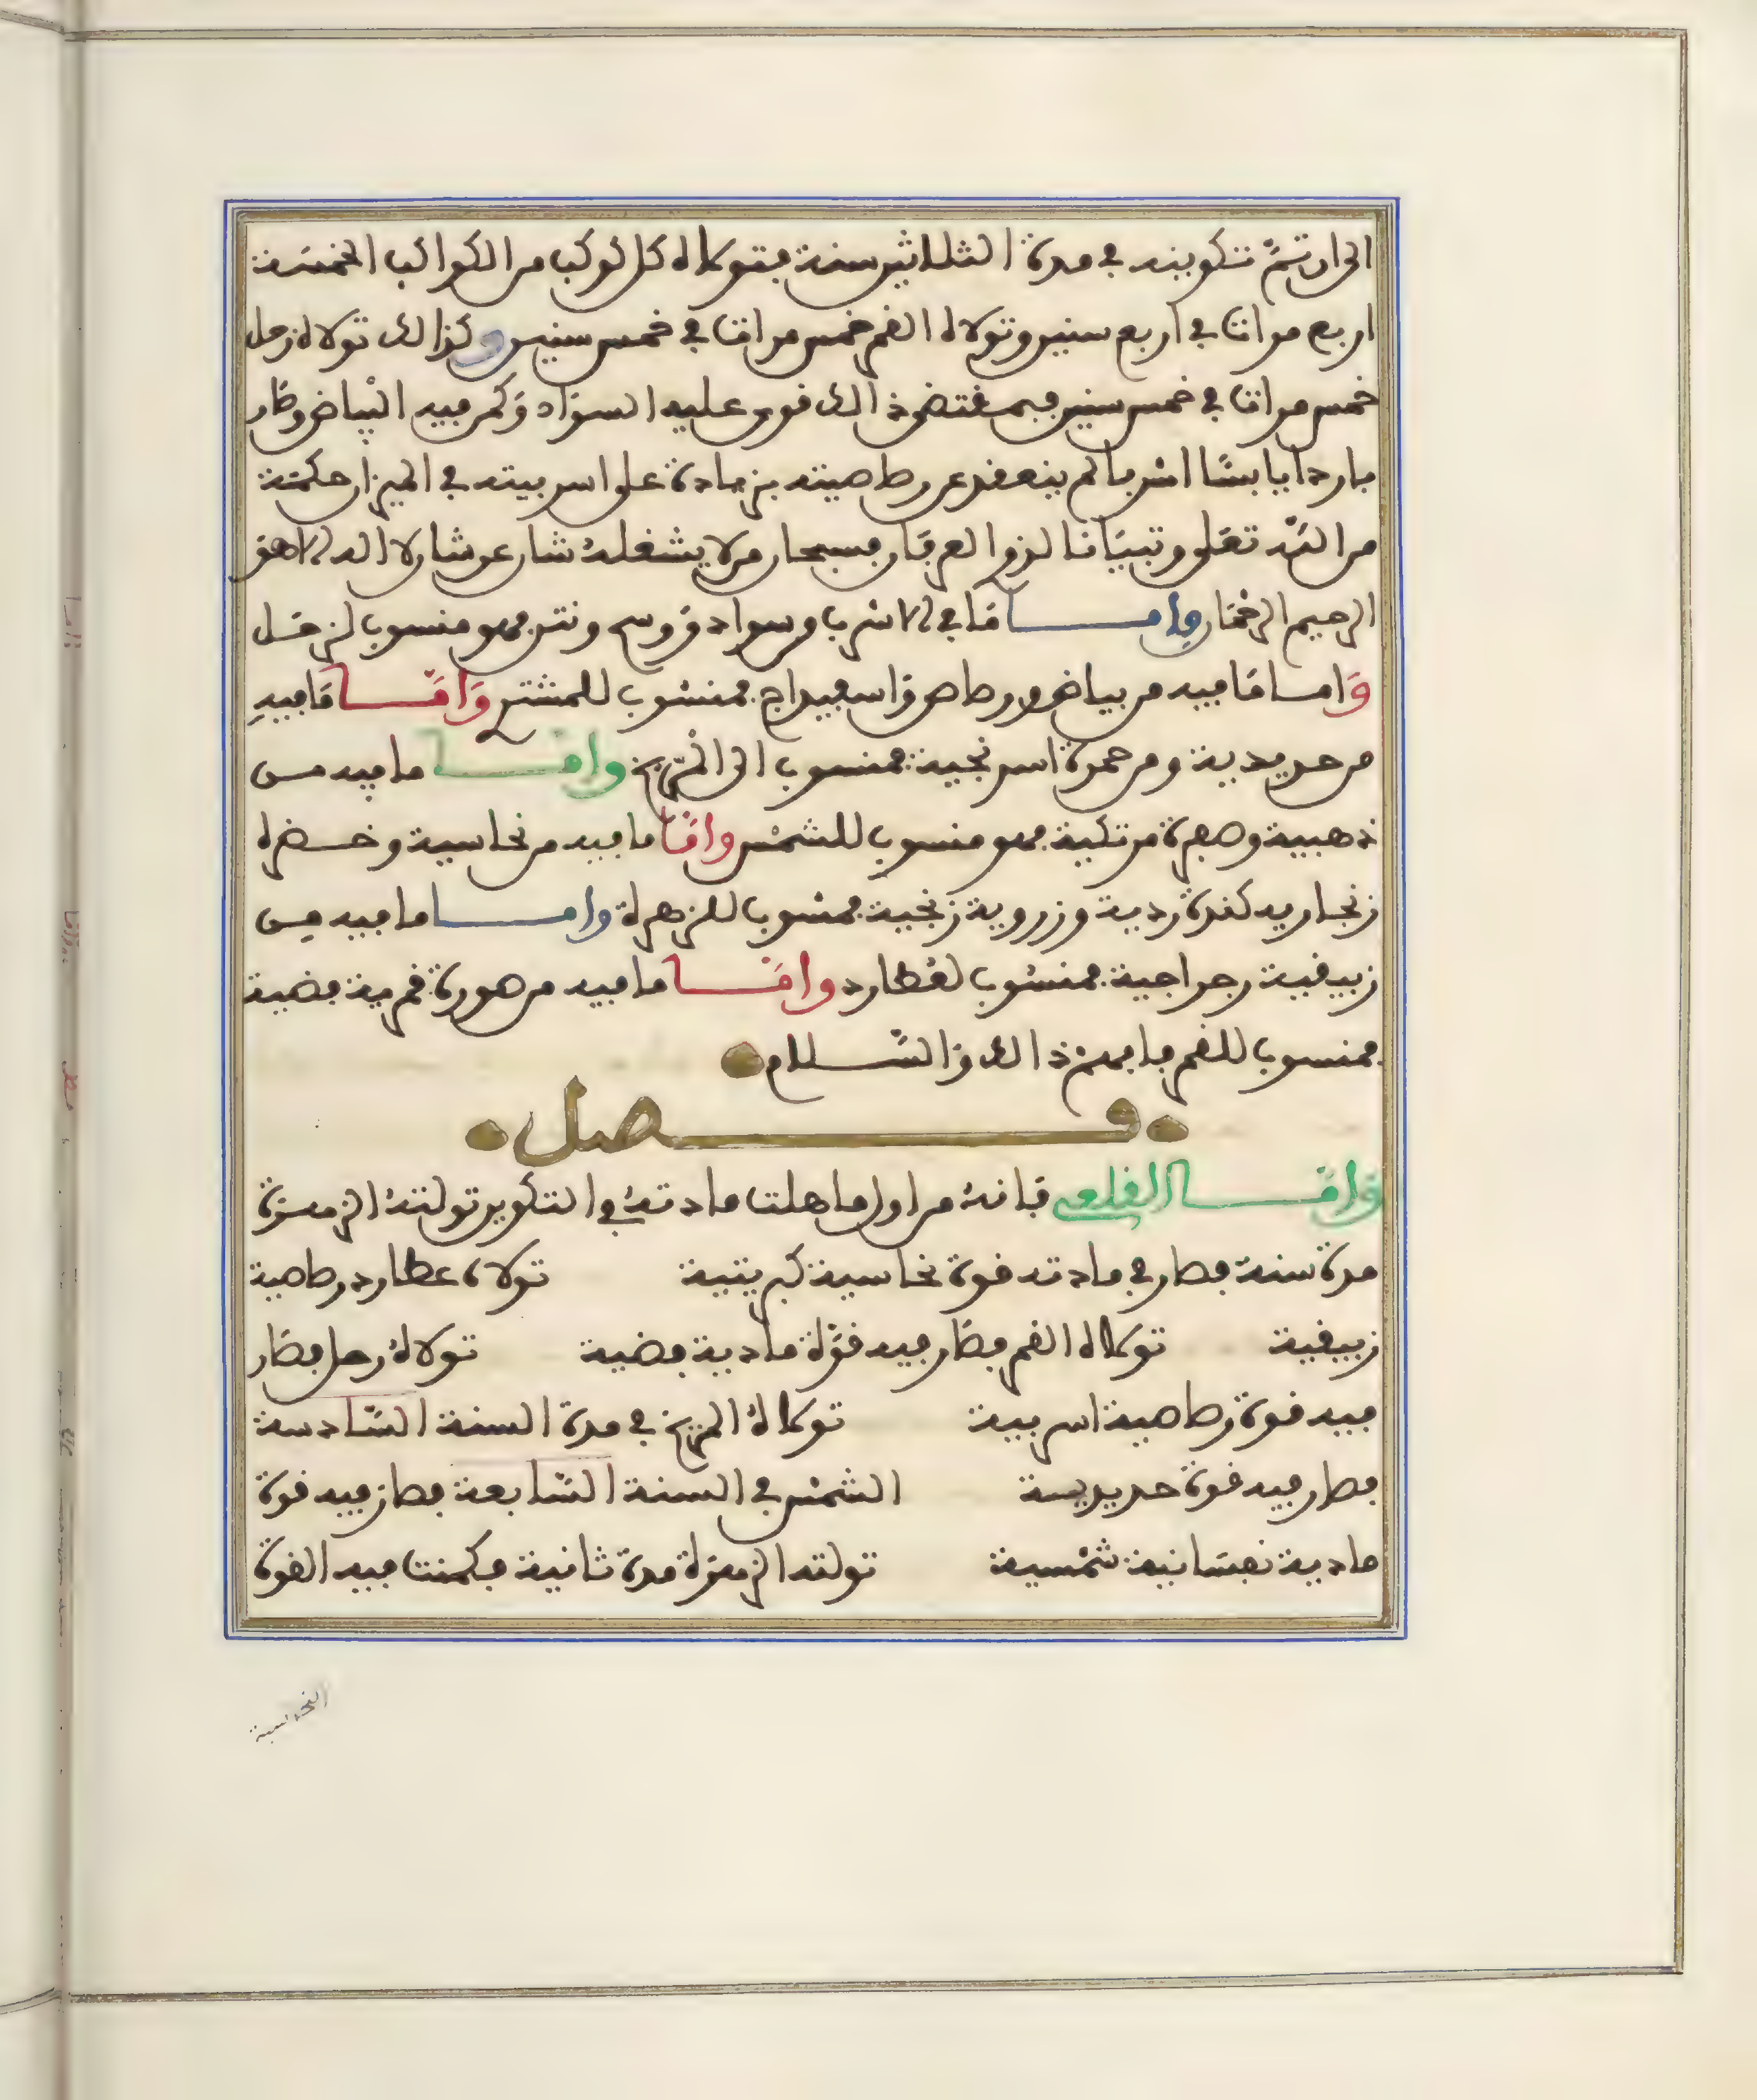 الى ان تمّ تكوينه في مدة الثلاثين سنة فتولاه كل كوكب من الكواكب الخمسة
اربع مرات في اربع سنين وتولاه القمر خمس مرات في خمس سنين وكذالك تولاه زحل
خمس مرات في خمس سنين فبمقتضى ذالك قوى عليه السواد وكمن فيه البياض وصار
باردا يابسا اسربا لم ينعقد عن رصاصيته بزيادة على اسربيته في الميزان حكمة
من الله تعلى وتبيانا لذو العرفان فسبحان من لا يشغله شان عن شان لا اله الا هو
الرحيم الرحمان واما ما في الاسرب من سواد ووسخ ونتن فهو منسوب لزحل
واما ما فيه من بياض ورصاص واسفيداج فمنسوب للمشتر واما ما فيه
من حديدية ومن حمرة اسرنجية فمنسوب الى المريخ واما ما فيه من
ذهبية وصفرة مرتكية فهو منسوب للشمس واما ما فيه من نحاسية وخضرة
زنجارية كندة ردية وزروية زنجية فمنسوب للزهرة واما ما فيه من
زيبقية رجراجية فمنسوب لعطارد واما ما فيه من هورة قمرية فضية
فمنسوب للقمر فافهم ذالك والسلام
فصل
واما القلعي فانه من اول ما هلت مادته في التكوين تولته الزهرة
مدة سنة فصار في مادته قوة نحاسية كبريتية تولاه عطارد رصاصية
زيبقية تولاه القمر فصار فيه قوة مادية فضية تولاه زحل فصار
فيه قوة رصاصية اسربية تولاه المريخ في مدة السنة السادسة
فصار فيه قوة حديدية الشمس في السنة السابعة فصار فيه قوة
مادية نفسانية شمسية تولته الزهرة مدة ثانية فكمنت فيه القوة
النحاسية